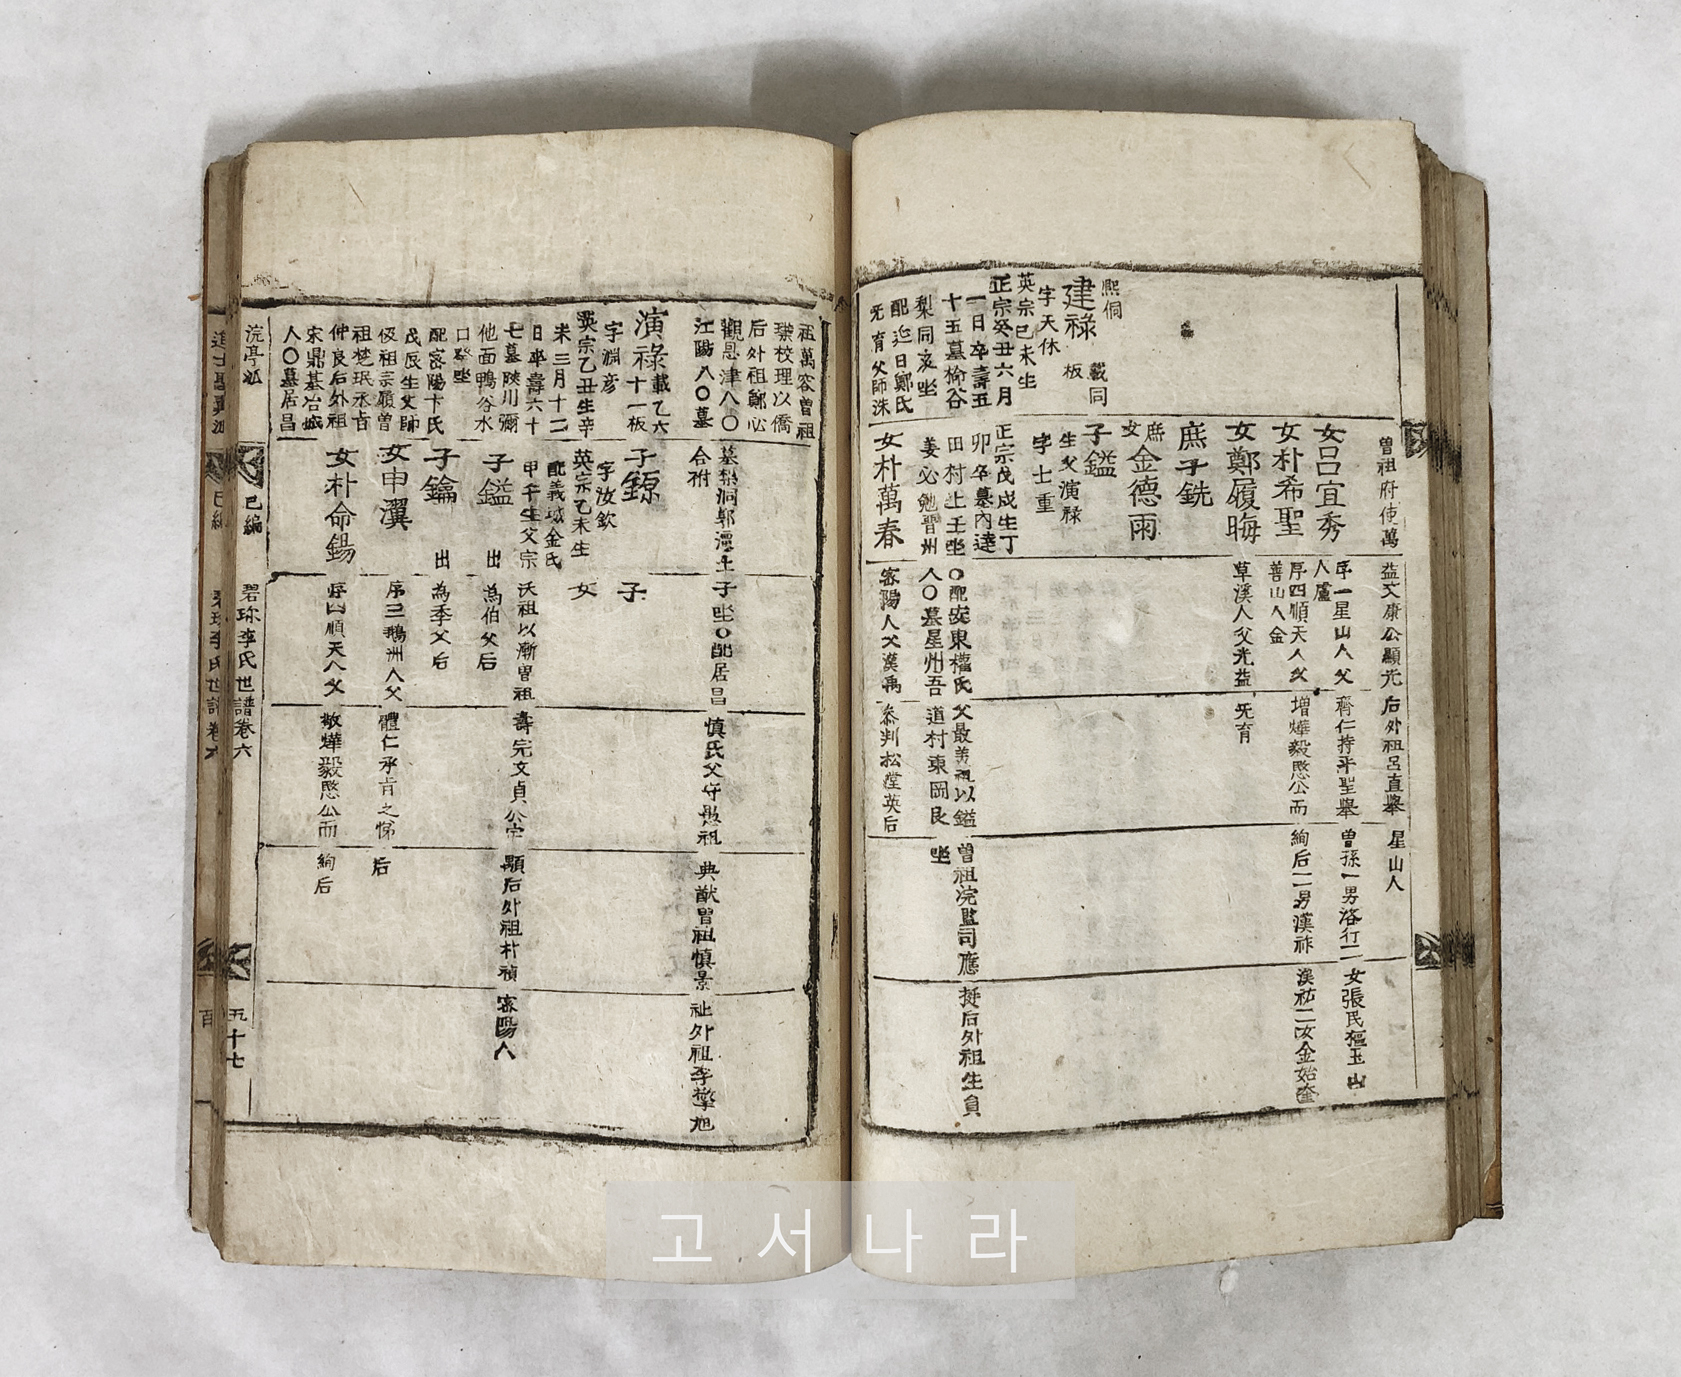 熙侗
建祿 載同板
字天休
英宗己未生
正宗癸丑六月
一日卒壽五
十五墓榆谷
梨同亥坐
配迎日鄭氏
无育父師洙
曾祖府使萬
益文康公顯光
后外祖呂直擧
星山人
女呂宜秀
序一星山人父
齊仁持平聖擧
曾孫一男洛行二
女張民樞玉山
人盧
女朴希聖
序四順天人父
增燁毅愍公而
絢后二男漢祚
漢祐二女金始奎
善山人金
女鄭履晦
草溪人父光益
无育
庶子銑
庶女金德雨
子鎰
生父演祿
字士重
正宗戊戌生丁
卯卒墓內達
田村上壬坐
〇配安東權氏
父最善祖以鎰
曾祖浣監司應
挺后外祖生員
姜必勉晋州
人〇墓星州吾
道村東岡艮
坐
女朴萬春
密陽人父漢禹
參判松堂英后
祖萬容曾祖
橃校理以僑
后外祖鄭心
觀恩津八〇
江陽八〇墓
演祿 載乙六十一板
字淵彦
英宗乙丑生辛
未三月十二
日卒壽六十
七墓陜川彌
他面鴨谷水
口癸坐
配密陽卞氏
戊辰生父師
伋祖宗嶺曾
祖楚珉丞旨
仲良后外祖
宋鼎基冶城
人〇墓居昌
墓梨洞郭潭土
子坐〇配居昌
愼氏父守愚祖
典猷曾祖愼景
祉外祖李擎旭
合祔
子鍄
字汝欽
英宗乙未生
配義城金氏
甲午生父宗
沃祖以漸曾祖
壽完文貞公宇
顯后外祖朴禎
密陽人
子
女
子鎰
出為伯父后
子鑰
出為季父后
女申瀷
序三鵝洲人父
體仁承旨之悌
后
女朴命錫
序四順天人父
敬燁毅愍公而
絢后
浣亭派
巳編
碧珍李氏世譜卷六
五十七
고서나라